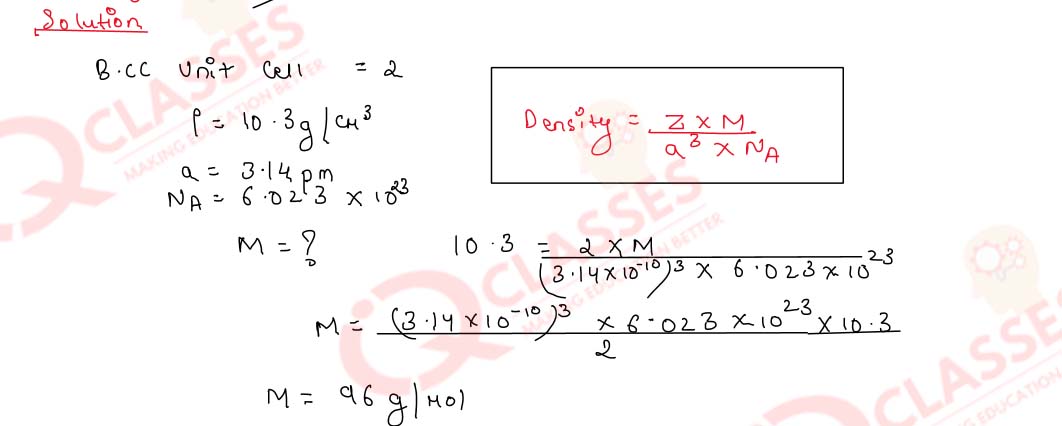 Solution
B.CC Unit Cell = 2
ρ = 10.3g/cm³
a = 3.14 pm
NA = 6.023 × 10²³
Density = Z × M / a³ × NA
M = ?
10.3 = 2 × M / (3.14×10⁻¹⁰)³ × 6.023×10²³
M = (3.14×10⁻¹⁰)³ × 6.023×10²³ × 10.3 / 2
M = 96 g/mol
CLASSES
MAKING EDUCATION BETTER
CLASSES
MAKING EDUCATION BETTER
CLASSES
EDUCATION